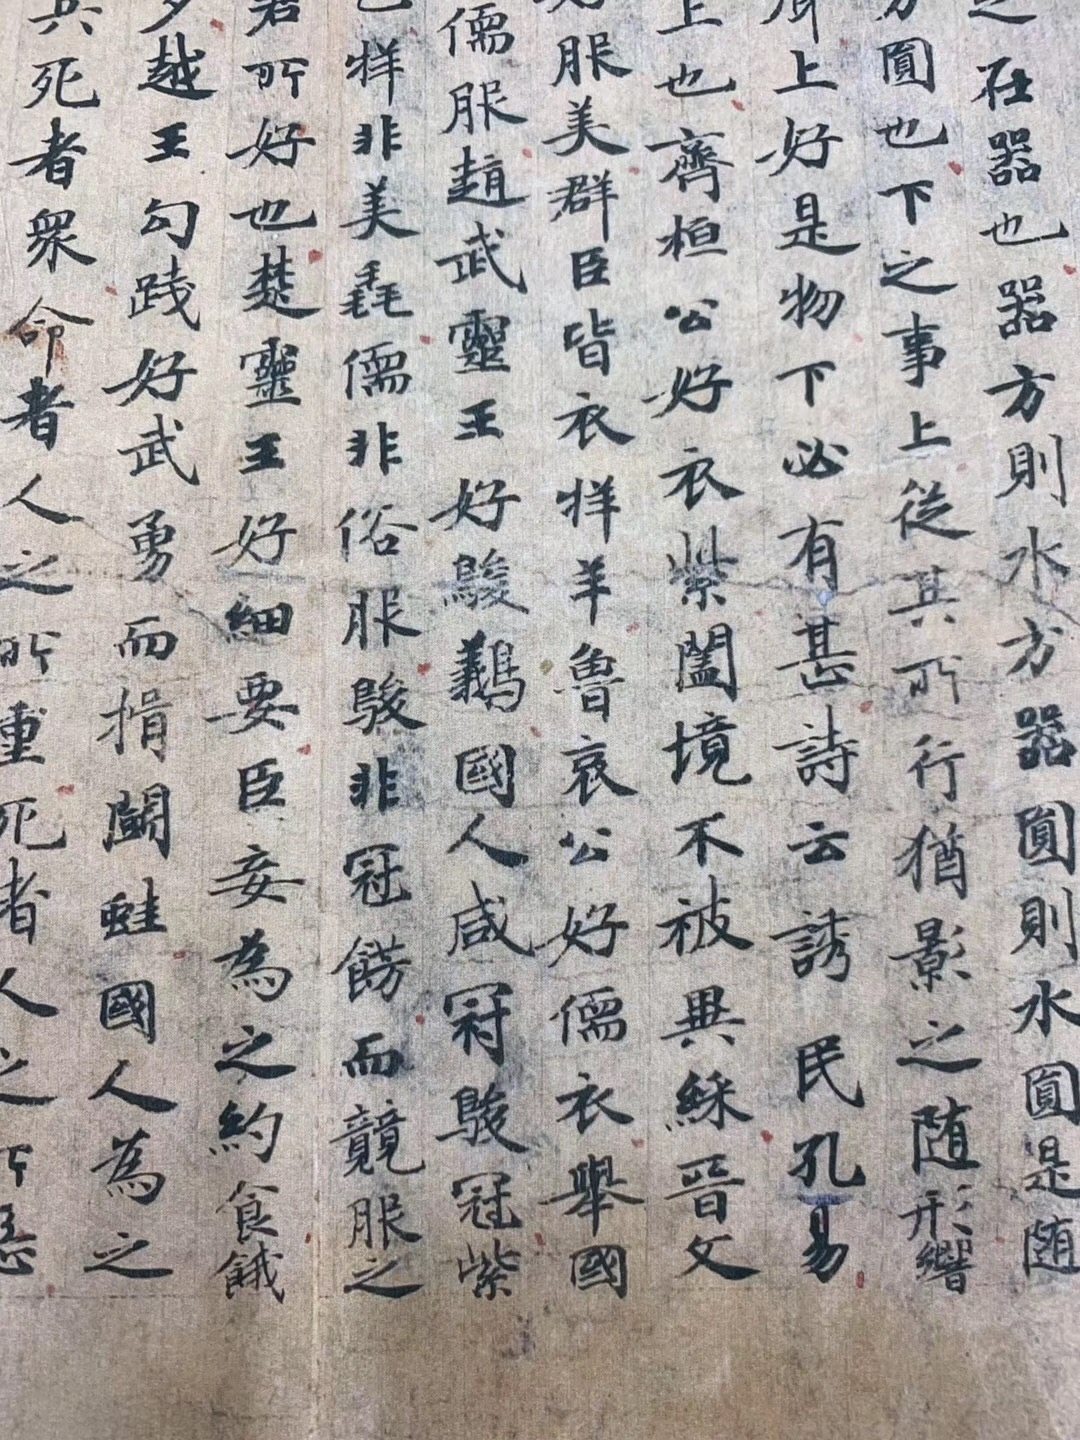 之在器也器方則水方器圓則水圓是随
方圓也下之事上從其所行猶影之随形響
上好是物下必有甚詩云誘民孔易
上也齊桓公好衣紫闔境不被異綵晉文
服美群臣皆衣牂羊魯哀公好儒衣舉國
儒服趙武靈王好駿鸃國人咸冠駿冠紫
牂非美毳儒非俗服駿非冠餝而競服之
君所好也楚靈王好細要臣妾為之約食餓
越王勾踐好武勇而揖鬭蛙國人為之
兵死者衆命者人之所重死者人之所惡